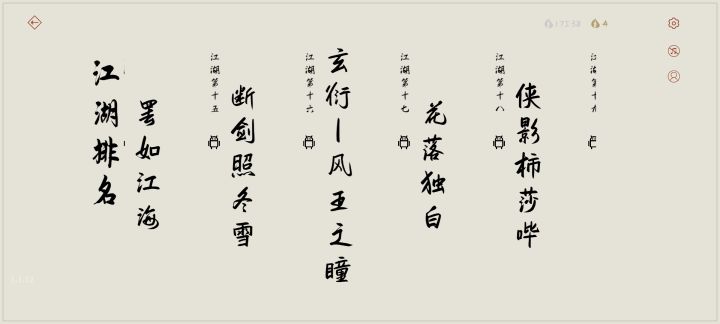 江湖排名
罢如江海
江湖第十五
断剑照冬雪
江湖第十六
玄衍丨风王之瞳
江湖第十七
花落独白
江湖第十八
侠影柿莎哔
江湖第十九
4